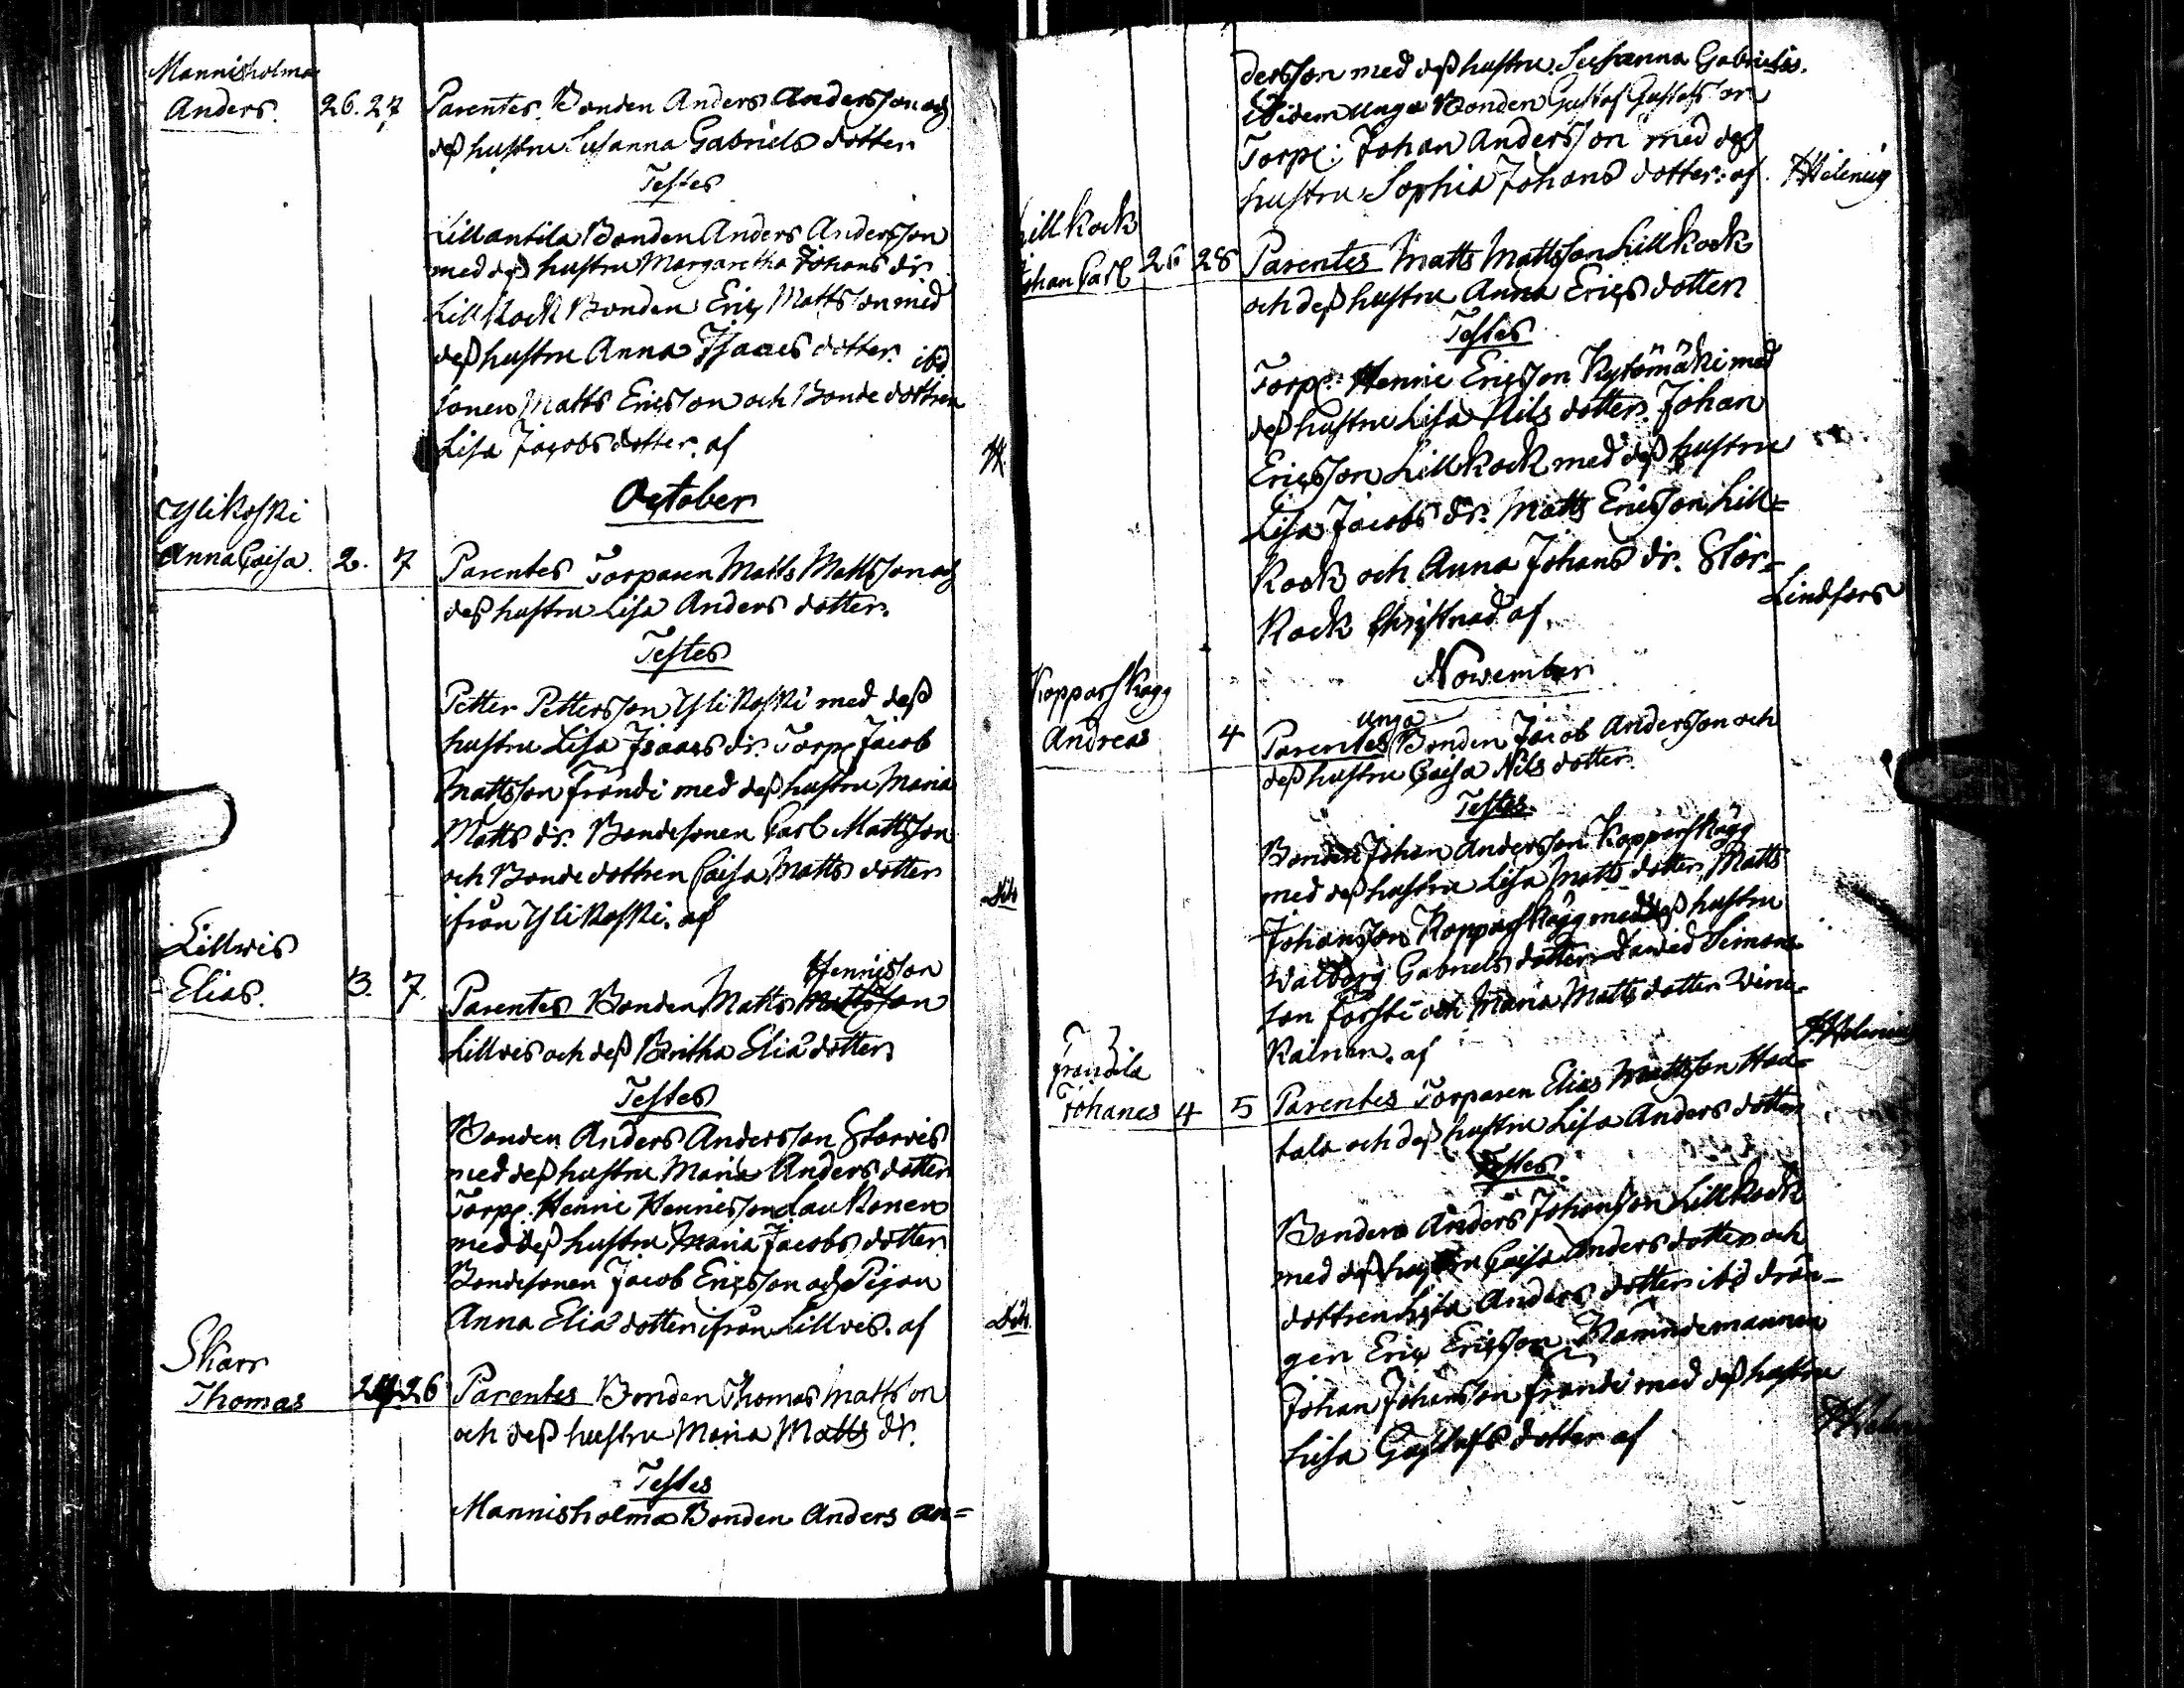 Mannisholma
Anders. 26. 27 Parentes. Bonden Anders Andersson och
dess hustru Susanna Gabriels dotter
Testes
Lillantila Bonden Anders Andersson
med dess hustru Margaretha Johans dr
Lill Kock Bonden Eric Mattsson med
dess hustru Anna Isaacs dotter. ibd
sonen Matts Ericsson och Bonde dottren
Lisa Jacobs dotter. af
October
Ylikoski
Anna Caisa. 2. 7 Parentes Torparen Matts Mattsson och
dess hustru Lisa Anders dotter.
Testes
Petter Pettersson Ylikoski med dess
hustru Lisa Isaacs dr. Torp. Jacob
Mattsson Frändi med dess hustru Maria
Matts dr. Bondesonen Carl Mattsson
och Bonde dottren Caisa Matts dotter
ifrån Ylikoski. af
Lillwis
Elias. 3. 7. Parentes Bonden Matts Mattsson Hennisson
Lillwis och dess Britha Elia dotter
Testes
Bonden Anders Andersson Storwis
med dess hustru Maria Anders dotter
Torp. Henric Henrisson Laukonen
med dess hustru Maria Jacobs dotter
Bondesonen Jacob Ericsson och Pigan
Anna Elia dotter ifrån Lillwis. af
Skarr
Thomas 24 26 Parentes Bonden Thomas Mattsson
och dess hustru Maria Matts dr.
Testes
Mannisholma Bonden Anders An=
dersson med dess hustru. Susanna Gabriels.
Ibidem unga Bonden Gustaf Gustafsson
Torp: Johan Andersson med dess
hustru Sophia Johans dotter. af. Helenius
Lill Kock
Johan Carl 26 28 Parentes Matts Mattsson Lillkock
och dess hustru Anna Erics dotter
Testes
Torp: Henric Ericsson Kytömäki med
dess hustru Lisa Nils dotter. Johan
Ericsson Lillkock med dess hustru
Lisa Jacobs dr. Matts Ericsson Lill=
Kock och Anna Johans dr. Stor=
Kock Christnad af. Lindfors
November
Kopparskägg
Andreas 4 Parentes unga Bonden Jacob Andersson och
dess hustru Caisa Nils dotter.
Testes
Bonden Johan Andersson Kopparskägg
med dess hustru Lisa Matts dotter, Matts
Johansson Kopparskägg med dess hustru
Walborg Gabriels dotter Dawid Simons
son Forsti och Maria Matts dotter Wini=
Kainen. af Helenius
Frändila
Johanes 4 5 Parentes Torparen Elias Mattsson Haa=
tala och dess hustru Lisa Anders dotter
Testes.
Bonden Anders Johansson Lillkock
med dess hustru Caisa Anders dotter och
dottren Lisa Anders dotter ibd drän=
gen Eric Ericsson, Nämndemannen
Johan Johansson Frändi med dess hustru
Lisa Gustafs dotter af